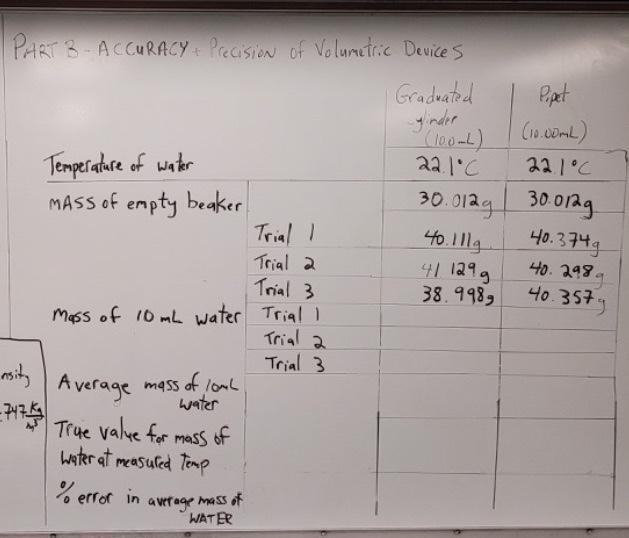 PART B - ACCURACY + Precision of Volumetric Devices
Graduated cylinder (10.0mL) Pipet (10.00mL)
Temperature of water 22.1°C 22.1°C
MASS of empty beaker 30.012g 30.012g
Trial 1 40.111g 40.374g
Trial 2 41.129g 40.298g
Trial 3 38.998g 40.357g
Mass of 10 mL water Trial 1
Trial 2
Trial 3
nsity
.747 Kg/m³
Average mass of 10mL
water
True value for mass of
water at measured Temp
% error in average mass of
WATER